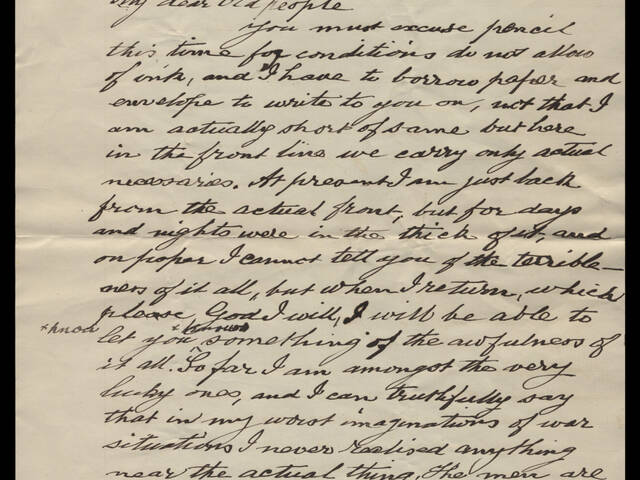 My dear Old people
you must excuse pencil
this time for conditions do not allow
of ink, and I have to borrow paper and
envelope to write to you on, not that I
am actually short of same but here
in the front line we carry only actual
necessaries. At present I am just back
from the actual front, but for days
and nights were in the thick of it, and
on paper I cannot tell you of the terrible-
ness of it all, but when I return, which
please, God I will, I will be able to
x know let you x something of the awfulness of
it all. So far I am amongst the very
lucky ones, and I can truthfully say
that in my worst imaginations of war
situations I never realised anything
near the actual thing. The men are